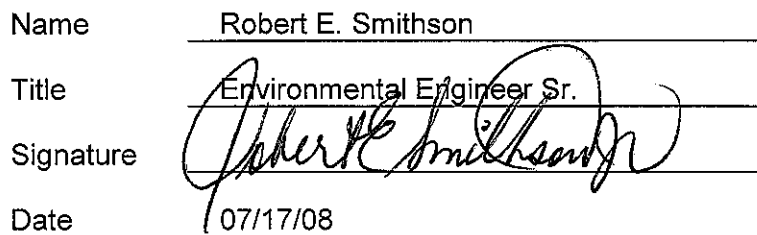 Name Robert E. Smithson
Title Environmental Engineer Sr.
Signature Robert E Smithson Jr
Date 07/17/08